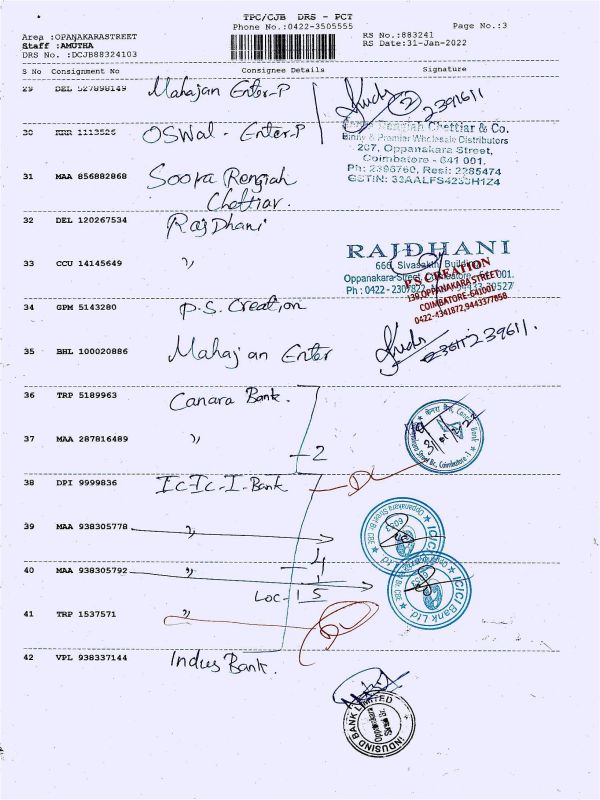 TPC/CJB DRS - PCT
Phone No.:0422-3505555
Page No.:3
Area :OPANAKARASTREET
RS No.:883241
Staff :AMUTHA
RS Date:31-Jan-2022
DRS No. :DCJB88324103
S No Consignment No Consignee Details Signature
29 DEL 527898149 Mahajan Enter-P
2391611
30 1113526 OSWal - Enter-P
Chettiar & Co.
Binny & Premier Wholesale Distributors
207, Oppanakara Street,
Coimbatore - 641 001.
Ph: 2396760, Resi: 2285474
GSTIN: 33AALFS4233H1Z4
31 MAA 856882868 Soora Rengiah
Chettiar.
32 DEL 120267534 RajDhani
RAJDHANI
666, Sivasakthi Building
Oppanakara Street, Coimbatore - 641 001.
Ph : 0422 -
33 CCU 14145649 〃
P.S CREATION
139,OPPANAKARA STREET
COIMBATORE-641001
0422-4341872,9443377858
34 GPM 5143280 P.S. Creation
35 BHL 100020886 Mahajan Enter
239611.
36 TRP 5189963 Canara Bank.
37 MAA 287816489 〃
-2
38 DPI 9999836 IcIc-I-Bank
39 MAA 938305778 〃
ICICI Bank Ltd
-4
40 MAA 938305792 〃
LOC-1 5
ICICI Bank Ltd
41 TRP 1537571 〃
42 VPL 938337144 Indus Bank.
INDUSIND BANK LIMITED